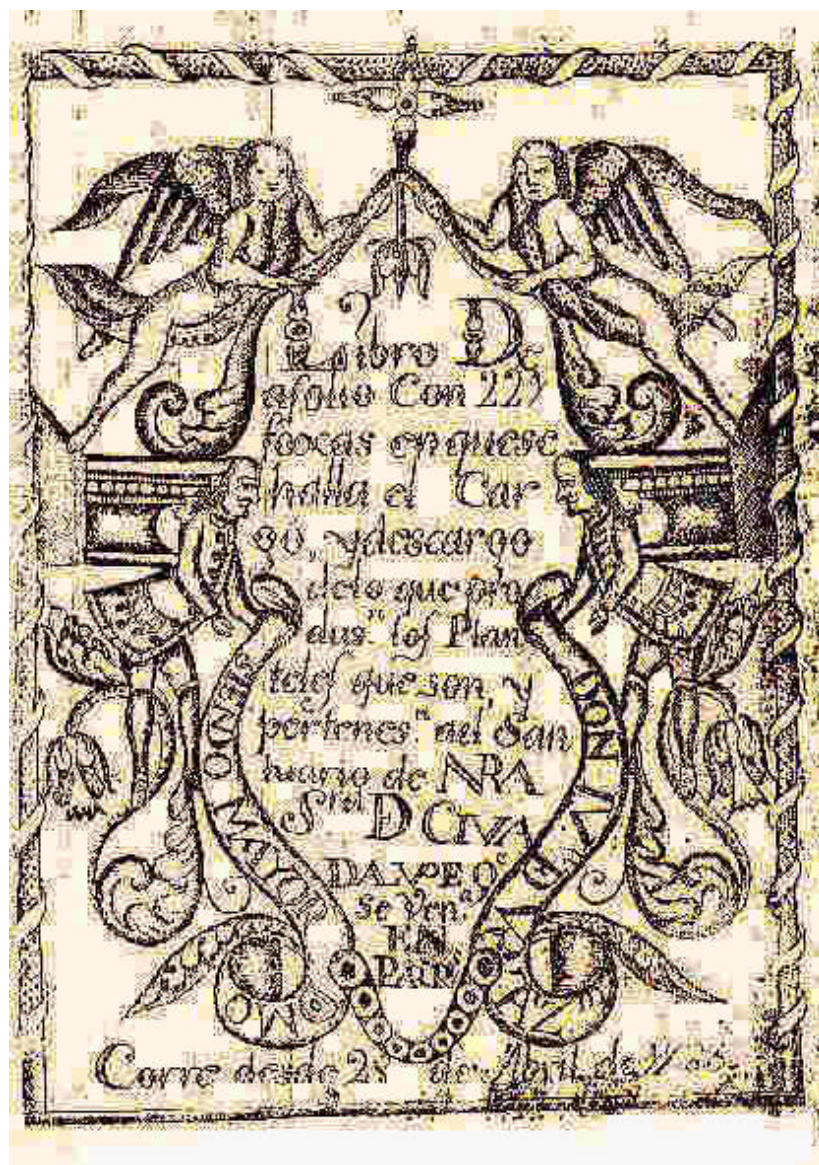 Libro De
afolio Con 227
foxas en quese
halla el Car
go, y descargo
delo que pro
dusn los Plan
teles que son, y
pertenesn al San
tuario de NRA
Sra D GVA
DALVPE Qe
se Vena
EN
SIENDO MAYOR
DOMO
DON JV
Corre desde 2 de Abril de